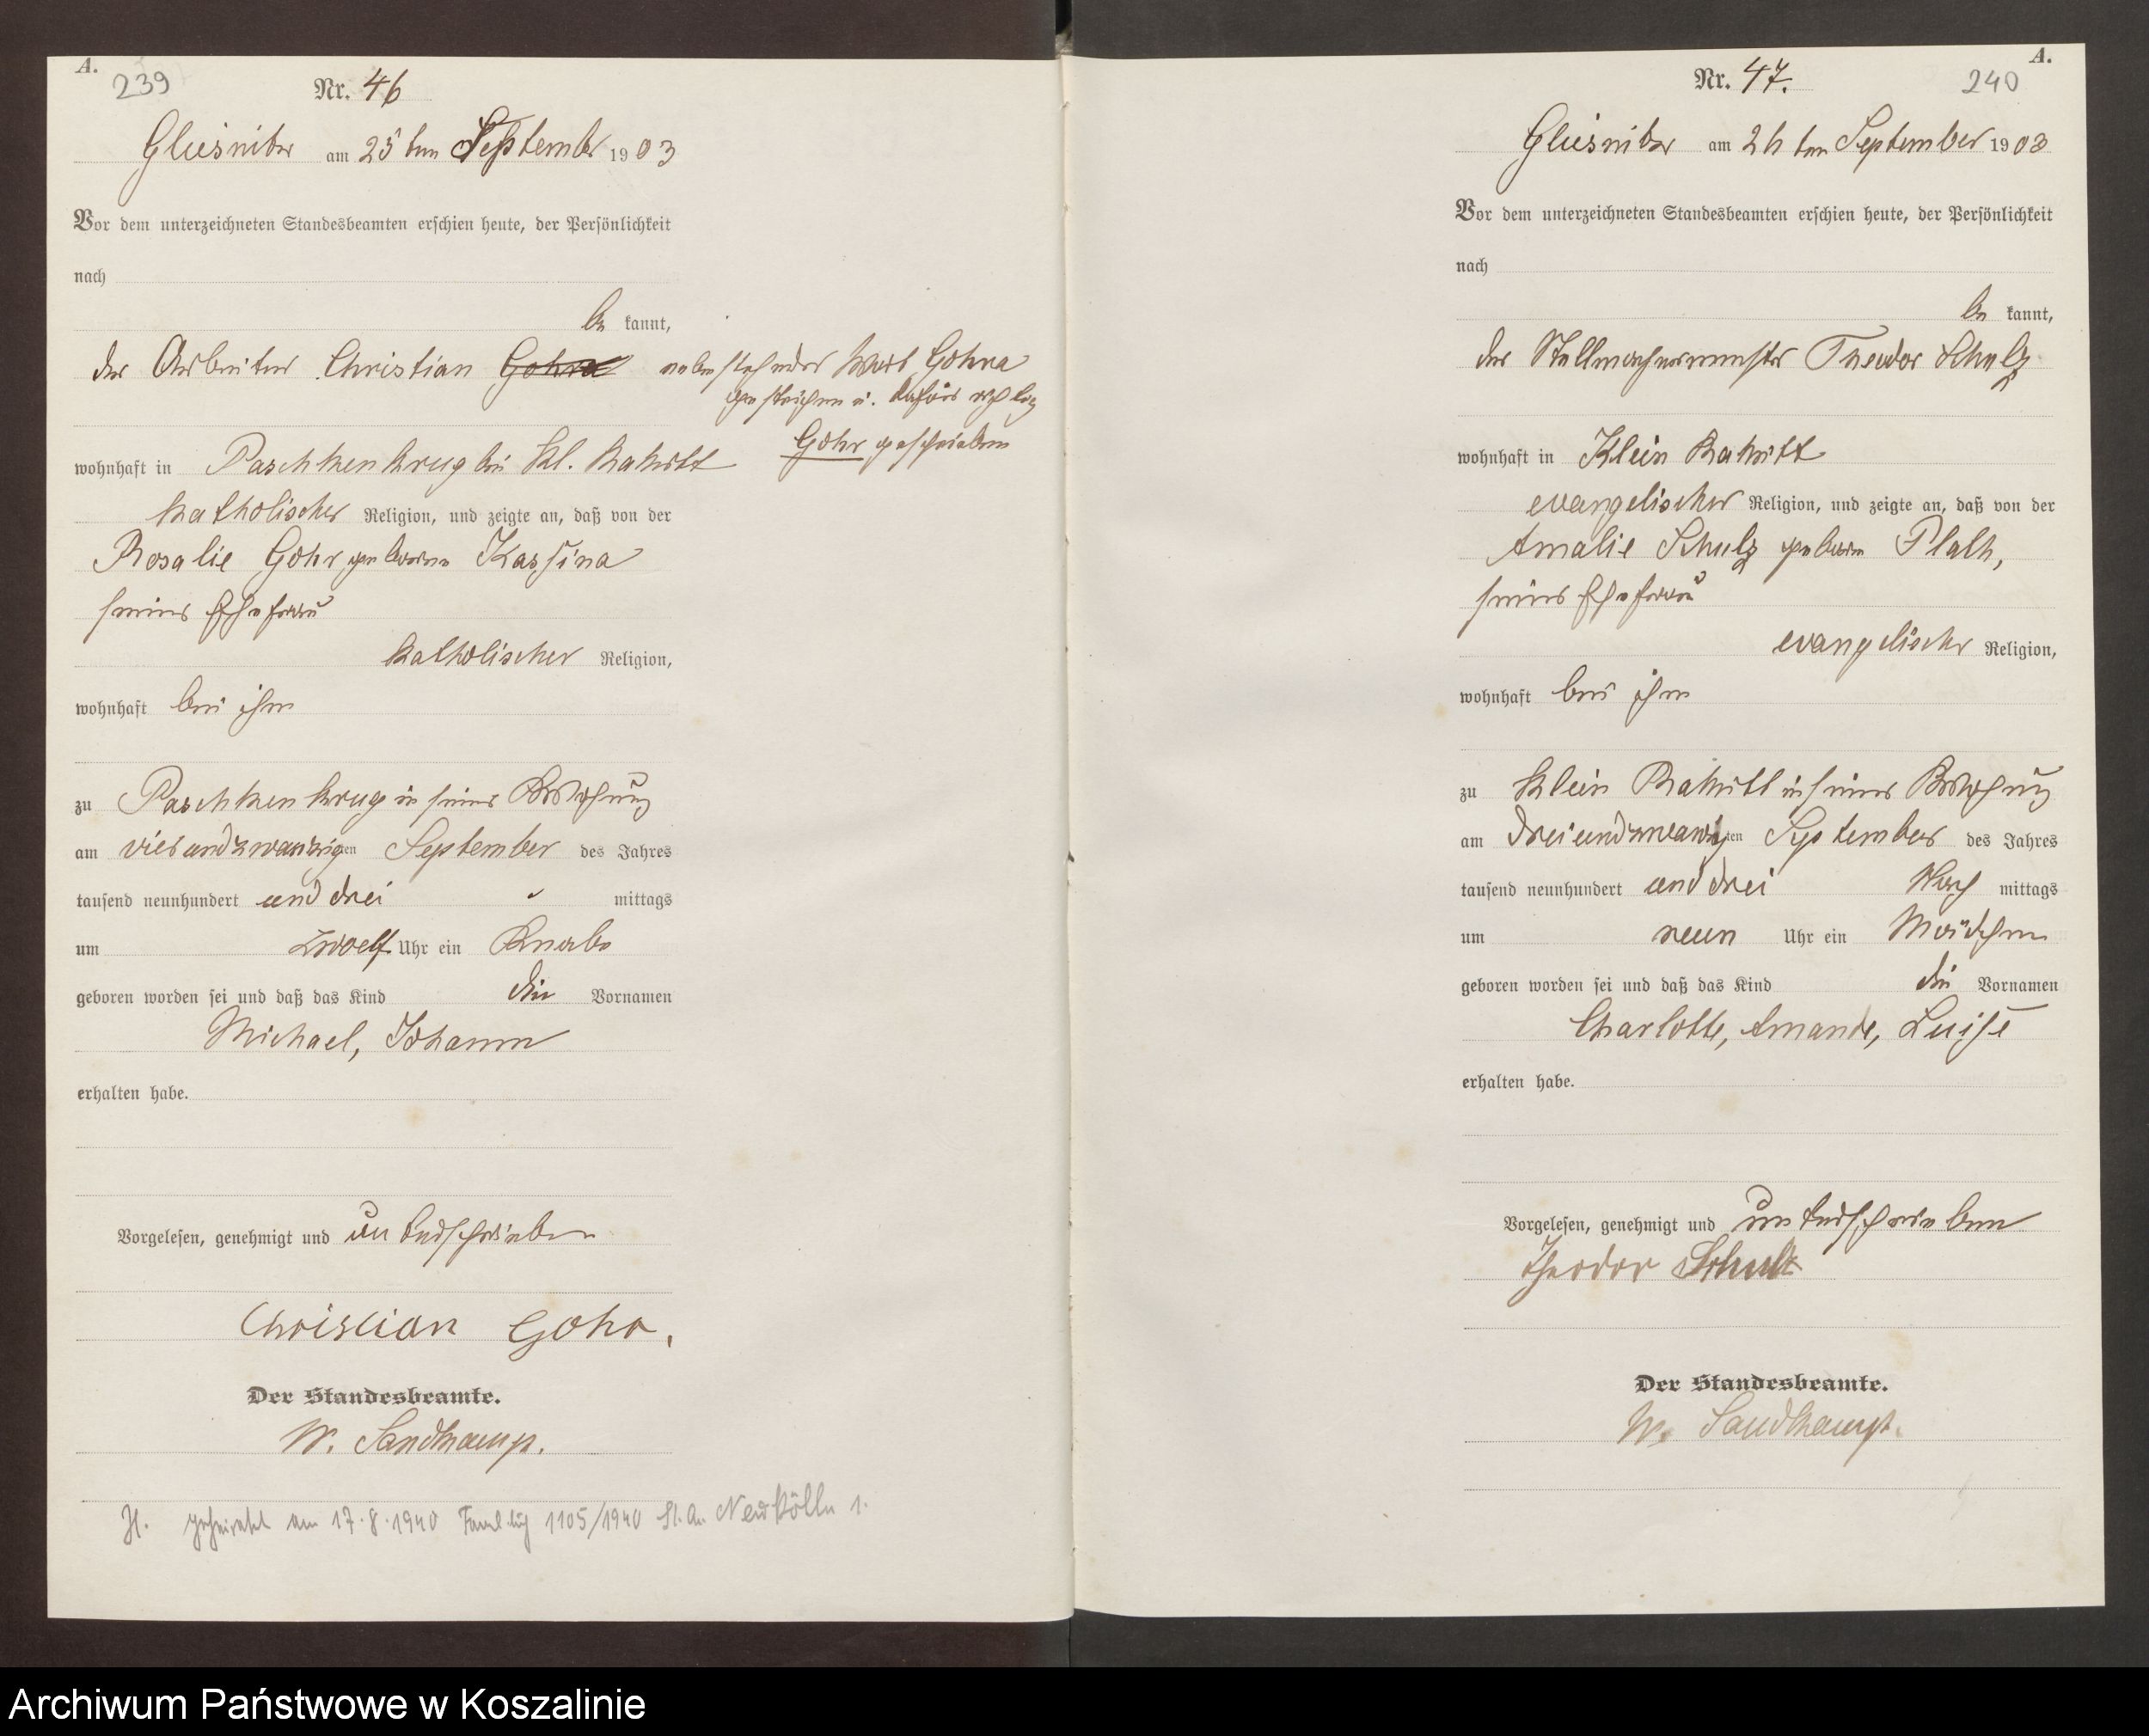 A.
239
Nr. 46
Gliesnitz am 25ten September 1903
Vor dem unterzeichneten Standesbeamten erschien heute, der Persönlichkeit
nach
be kannt,
der Arbeiter Christian Gohra nebenstehendes Wort Gohra
gestrichen u. dafür richtig
Gohr geschrieben
wohnhaft in Paschkenkrug bei Kl. Rakitt
katholischer Religion, und zeigte an, daß von der
Rosalie Gohr geborene Kassina
seiner Ehefrau
katholischer Religion,
wohnhaft bei ihm
zu Paschkenkrug in seiner Wohnung
am vierundzwanzigten September des Jahres
tausend neunhundert und drei mittags
um zwoelf Uhr ein Knabe
geboren worden sei und daß das Kind die Vornamen
Michael, Johann
erhalten habe.
Vorgelesen, genehmigt und unterschrieben
Christian Gohr.
Der Standesbeamte.
W. Sandkamp.
H. geheiratet am 17.8.1940 1105/1940 St.A. Neukölln 1.
A.
Nr. 47.
240
Gliesnitz am 26ten September 1903
Vor dem unterzeichneten Standesbeamten erschien heute, der Persönlichkeit
nach
be kannt,
der Stellmachermeister Theodor Schulz
wohnhaft in Klein Rakitt
evangelischer Religion, und zeigte an, daß von der
Amalie Schulz geborne Plath,
seiner Ehefrau
evangelischer Religion,
wohnhaft bei ihm
zu Klein Rakitt in seiner Wohnung
am dreiundzwanzigten September des Jahres
tausend neunhundert und drei Nach mittags
um neun Uhr ein Mädchen
geboren worden sei und daß das Kind die Vornamen
Charlotte, Amande, Luise
erhalten habe.
Vorgelesen, genehmigt und unterschrieben
Theodor Schulz
Der Standesbeamte.
W. Sandkamp.
Archiwum Państwowe w Koszalinie